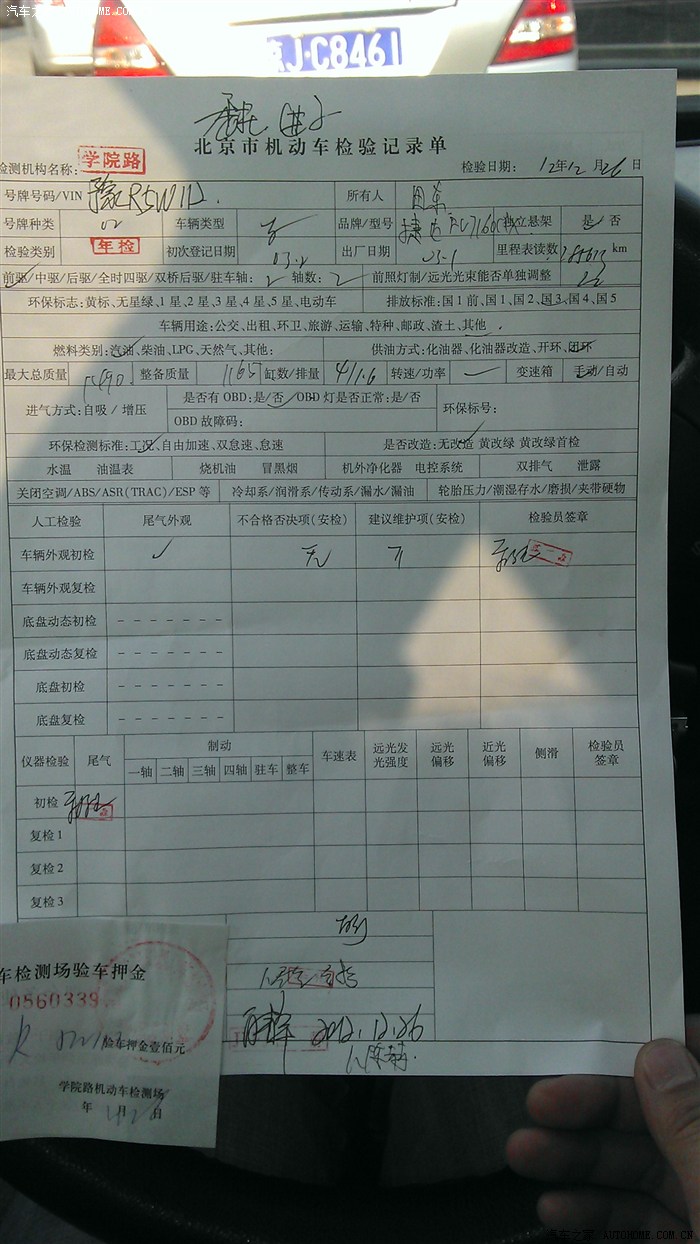 京JC8461
北京市机动车检验记录单
检测机构名称: 学院路 检验日期: 12年12月26日
号牌号码/VIN 豫R5W112 所有人
号牌种类 02 车辆类型 品牌/型号 捷达 独立悬架 是/否
检验类别 年检 初次登记日期 03.2 出厂日期 03.1 里程表读数 km
前驱/中驱/后驱/全时四驱/双桥后驱/驻车轴: 2 轴数: 2 前照灯制/远光光束能否单独调整
环保标志:黄标、无星绿、1星、2星、3星、4星、5星、电动车 排放标准:国1前、国1、国2、国3、国4、国5
车辆用途:公交、出租、环卫、旅游、运输、特种、邮政、渣土、其他
燃料类别:汽油、柴油、LPG、天然气、其他: 供油方式:化油器、化油器改造、开环、闭环
最大总质量 整备质量 缸数/排量 4/1.6 转速/功率 — 变速箱 手动/自动
进气方式:自吸/增压 是否有OBD:是/否 OBD灯是否正常:是/否 环保标号:
OBD故障码:
环保检测标准:工况、自由加速、双怠速、怠速 是否改造:无改造 黄改绿 黄改绿首检
水温 油温表 烧机油 冒黑烟 机外净化器 电控系统 双排气 泄露
关闭空调/ABS/ASR(TRAC)/ESP等 冷却系/润滑系/传动系/漏水/漏油 轮胎压力/潮湿存水/磨损/夹带硬物
人工检验 尾气外观 不合格否决项(安检) 建议维护项(安检) 检验员签章
车辆外观初检 ✓ 无
车辆外观复检
底盘动态初检 - - - - - - -
底盘动态复检 - - - - - - -
底盘初检 - - - - - - -
底盘复检 - - - - - - -
仪器检验 尾气 制动 车速表 远光发光强度 远光偏移 近光偏移 侧滑 检验员签章
一轴 二轴 三轴 四轴 驻车 整车
初检
复检1
复检2
复检3
车检测场验车押金
0860339
验车押金壹佰元
2012.12.26
学院路机动车检测场
年 月 日
汽车之家/AUTOHOME.COM.CN